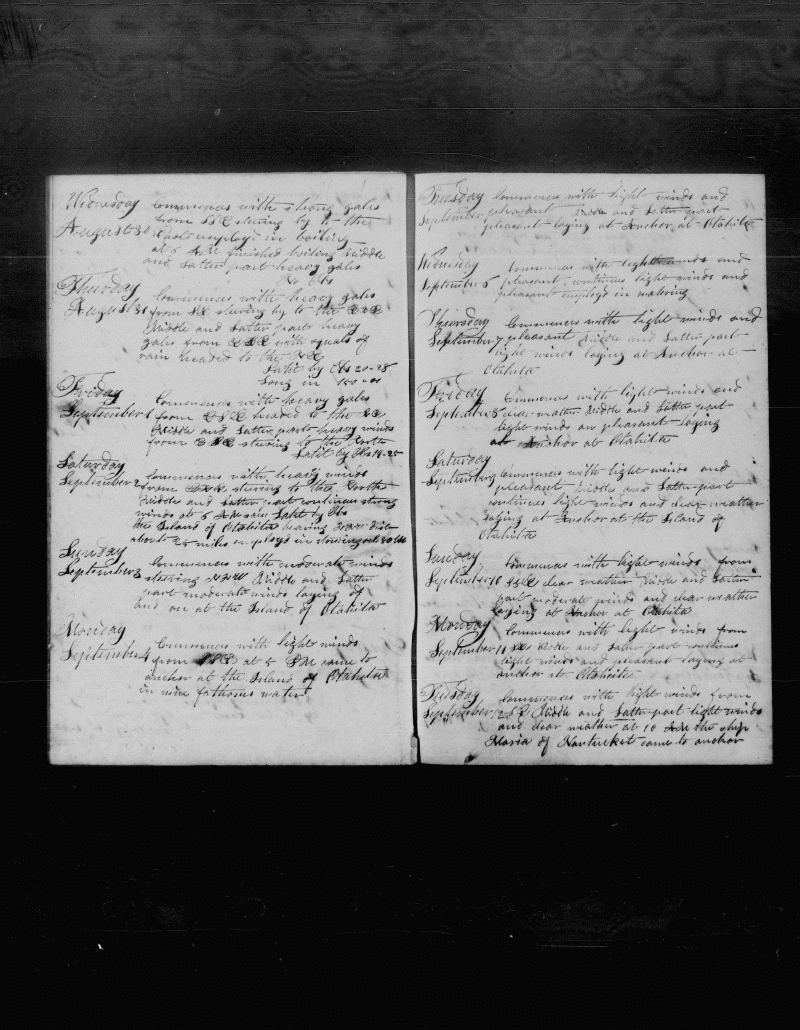 Wednesday Commences with strong gales
August 30 from SSE stering by to the
East employd in boiling
at 5 AM finished boiling Middle
and Latter part heavy gales
No Obs
Thursday
August 31 Commences with heavy gales
from SE stering by to the
Middle and Latter part heavy
gales from ESE with squals of
rain headed to the
Latit by Obs 20-28
Long in 150
Friday
September 1 Commences with heavy gales
from ESE headed to the
Middle and Latter part heavy winds
from ESE stering to the North
Latit by Obs 19-25
Saturday
September 2 Commences with heavy winds
from stering to the North
Middle and Latter part continues strong
winds at 5 AM saw Latit by Obs
the Island of Otahita bearing dist
about 25 miles employd in stowing oil
Sunday
September 3 Commences with moderate winds
stering NNW Middle and Latter
part moderate winds laying of
and on at the Island of Otahita
Monday
September 4 Commences with light winds
from at 5 PM came to
anchor at the Island of Otahita
in nine fathoms water
Tuesday Commences with light winds and
September pleasant Middle and Latter part
pleasant laying at Anchor at Otahita
Wednesday Commences with light winds and
September 6 pleasant continues light winds and
pleasant employd in watering
Thursday Commences with light winds and
September 7 pleasant Middle and Latter part
light winds laying at Anchor at
Otahita
Friday Commences with light winds and
September 8 clear weather Middle and Latter part
light winds an pleasant laying
at Anchor at Otahita
Saturday
September 9 Commences with light winds and
pleasant Middle and Latter part
continues light winds and clear weather
laying at Anchor at the Island of
Otahita
Sunday Commences with light winds from
September 10 SSE clear weather Middle and Latter
part moderate winds and clear weather
laying at Anchor at Otahita
Monday Commences with light winds from
September 11 SE Middle and Latter part continues
light winds and pleasant laying at
anchor at Otahita
Tuesday Commences with light winds from
September 12 SE Middle and Latter part light winds
and clear weather at 10 AM the ship
Maria of Nantucket came to anchor